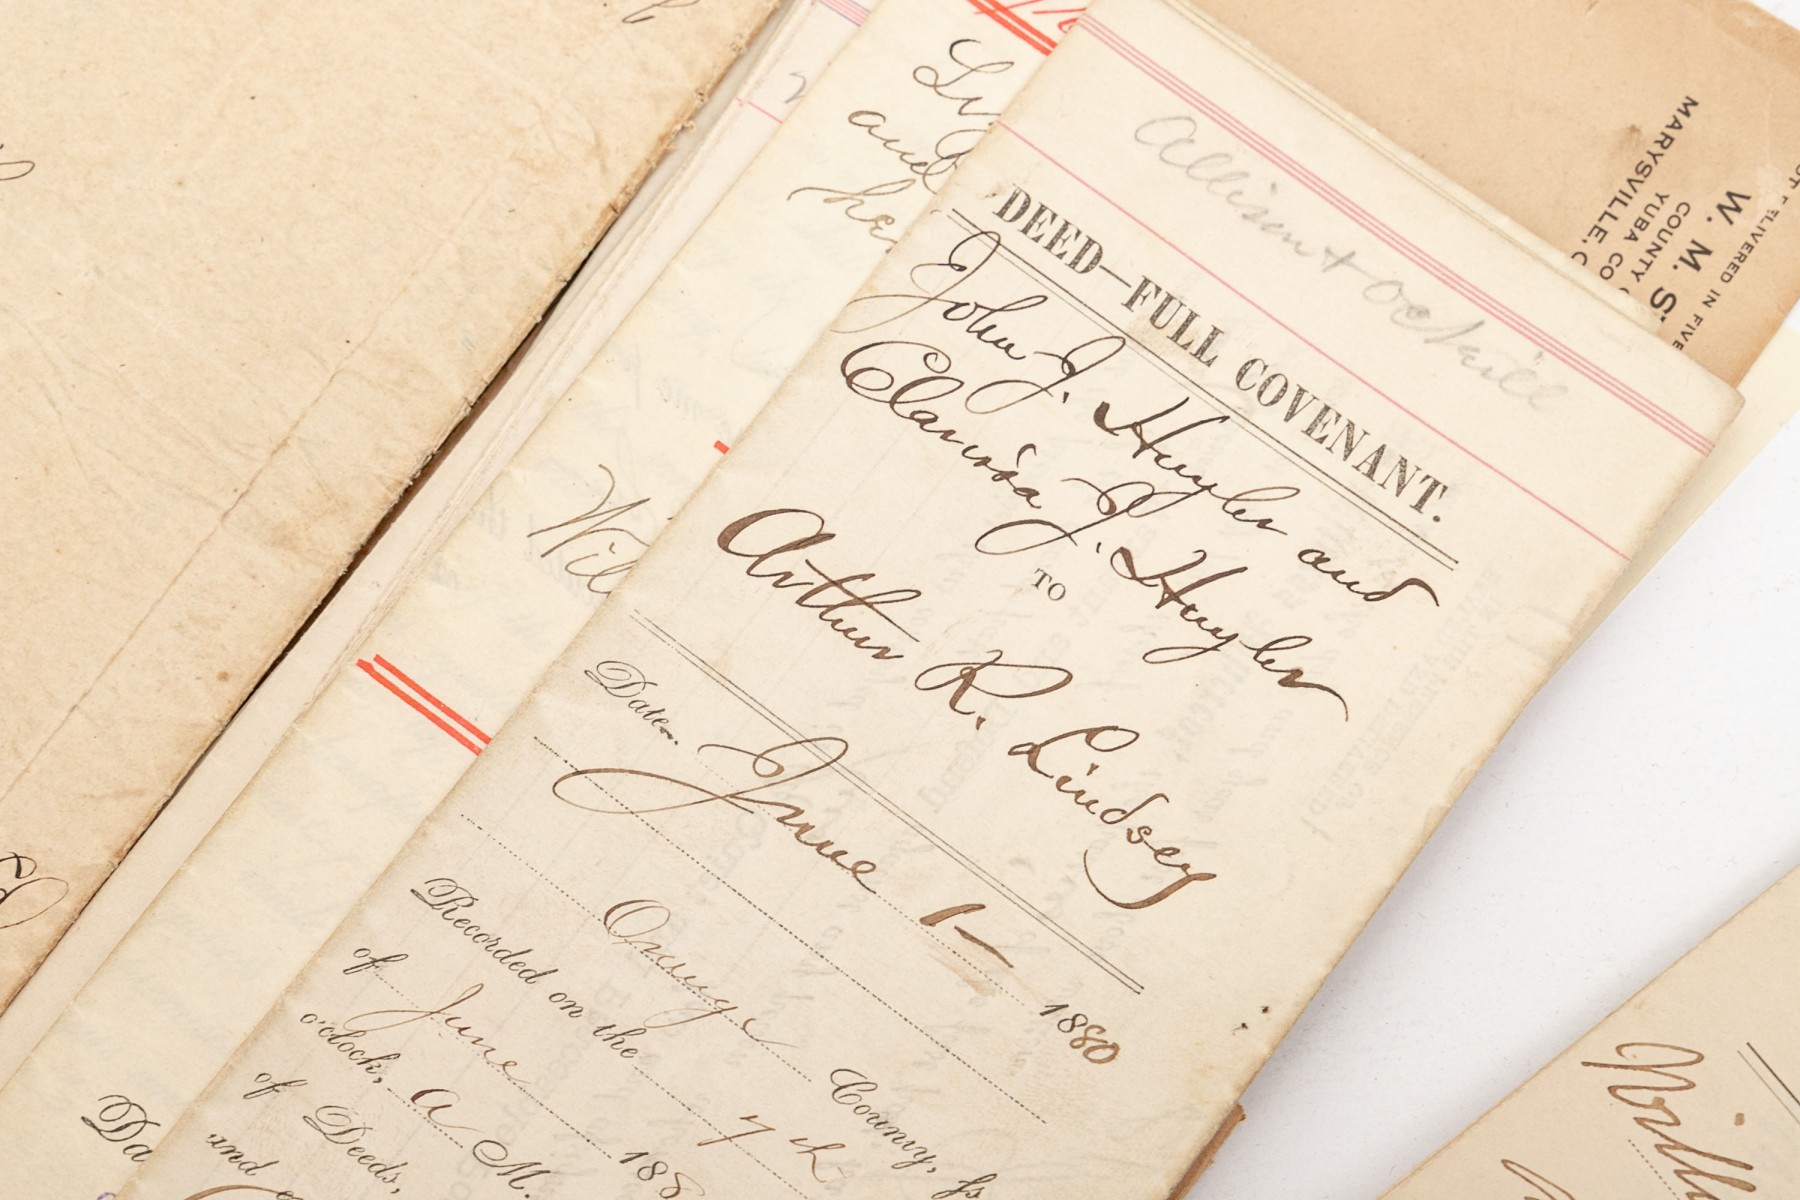 Allison + Octavill
DEED—FULL COVENANT.
John J. Huyler and
Clarissa J. Huyler
TO
Arthur R. Lindsey
Date
June 1— 1880
Orange County, ss
Recorded on the 7th
of June 188
o'clock, A M.
of Deeds,
and
and
he
Wil
Da
W. M. S
COUNTY
YUBA CO
MARYSVILLE, C
ELIVERED IN FIVE
Will